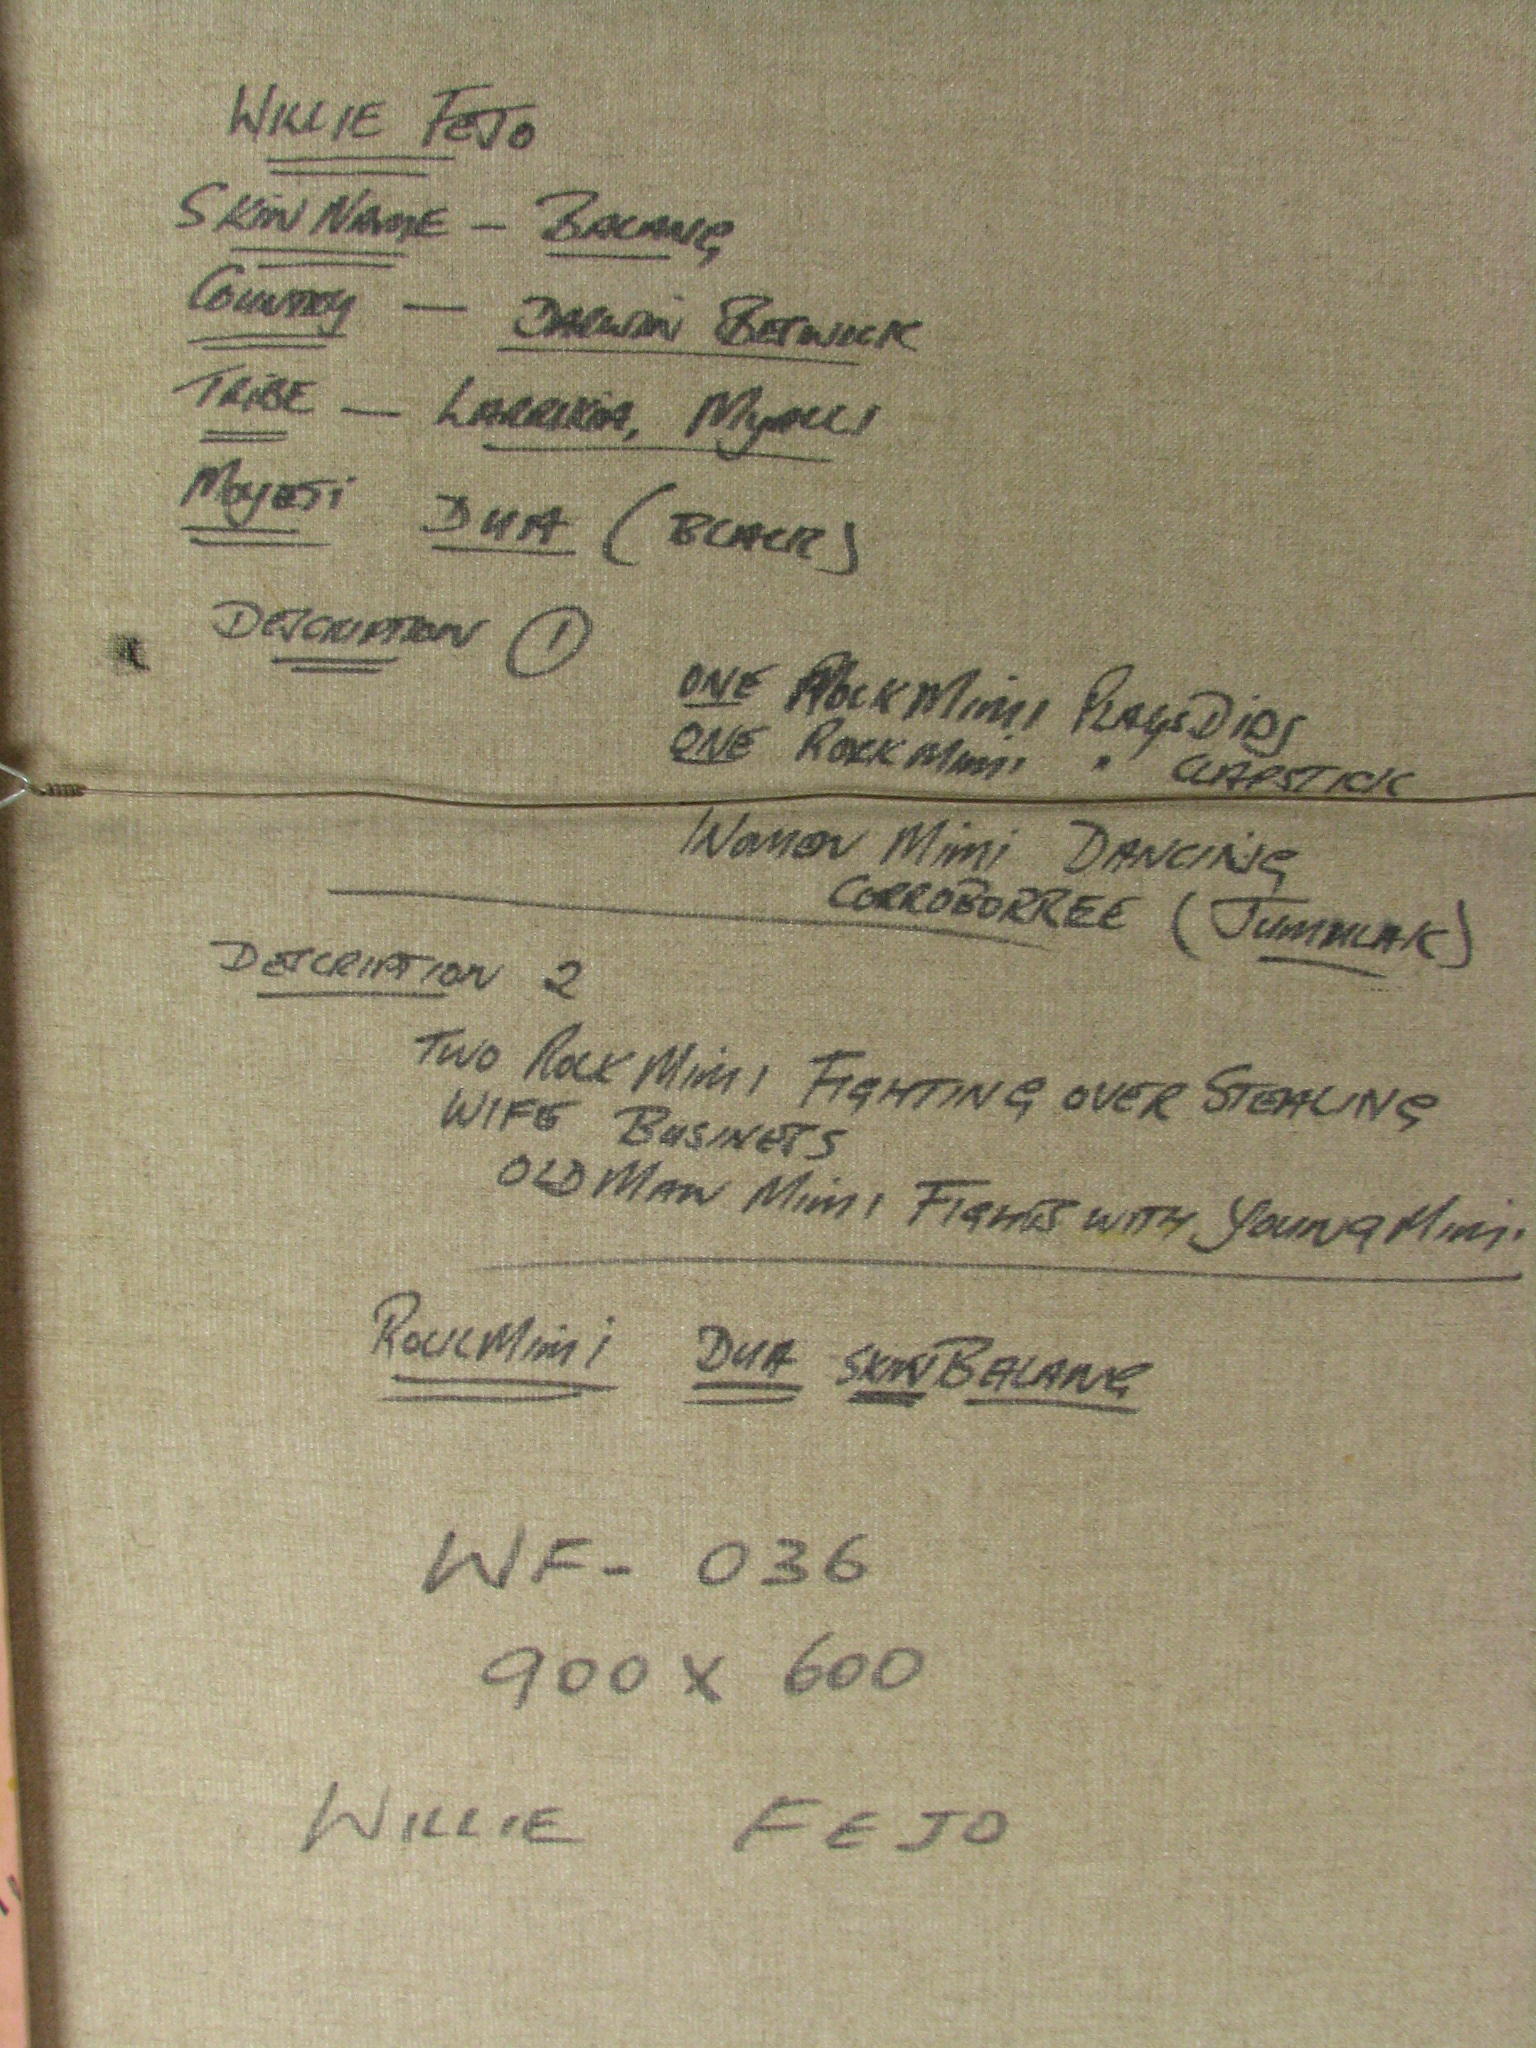 WILLIE FEJO
SKIN NAME - BALANG
COUNTRY - DARWIN BETWICK
TRIBE - LARRIKIA, Myalli
MOYETI DUA (BLACK)
DESCRIPTION 1
ONE ROCK MIMI PLAYS DIDJ
ONE ROCK MIMI " CLAPSTICK
WOMEN MIMI DANCING
CORROBORREE (JUMMLAK)
DESCRIPTION 2
TWO ROCK MIMI FIGHTING OVER STEALING
WIFE BUSINESS
OLD MAN MIMI FIGHTS WITH YOUNG MIMI.
ROCK MIMI DUA SKIN BALANG
WF - 036
900 x 600
WILLIE FEJO